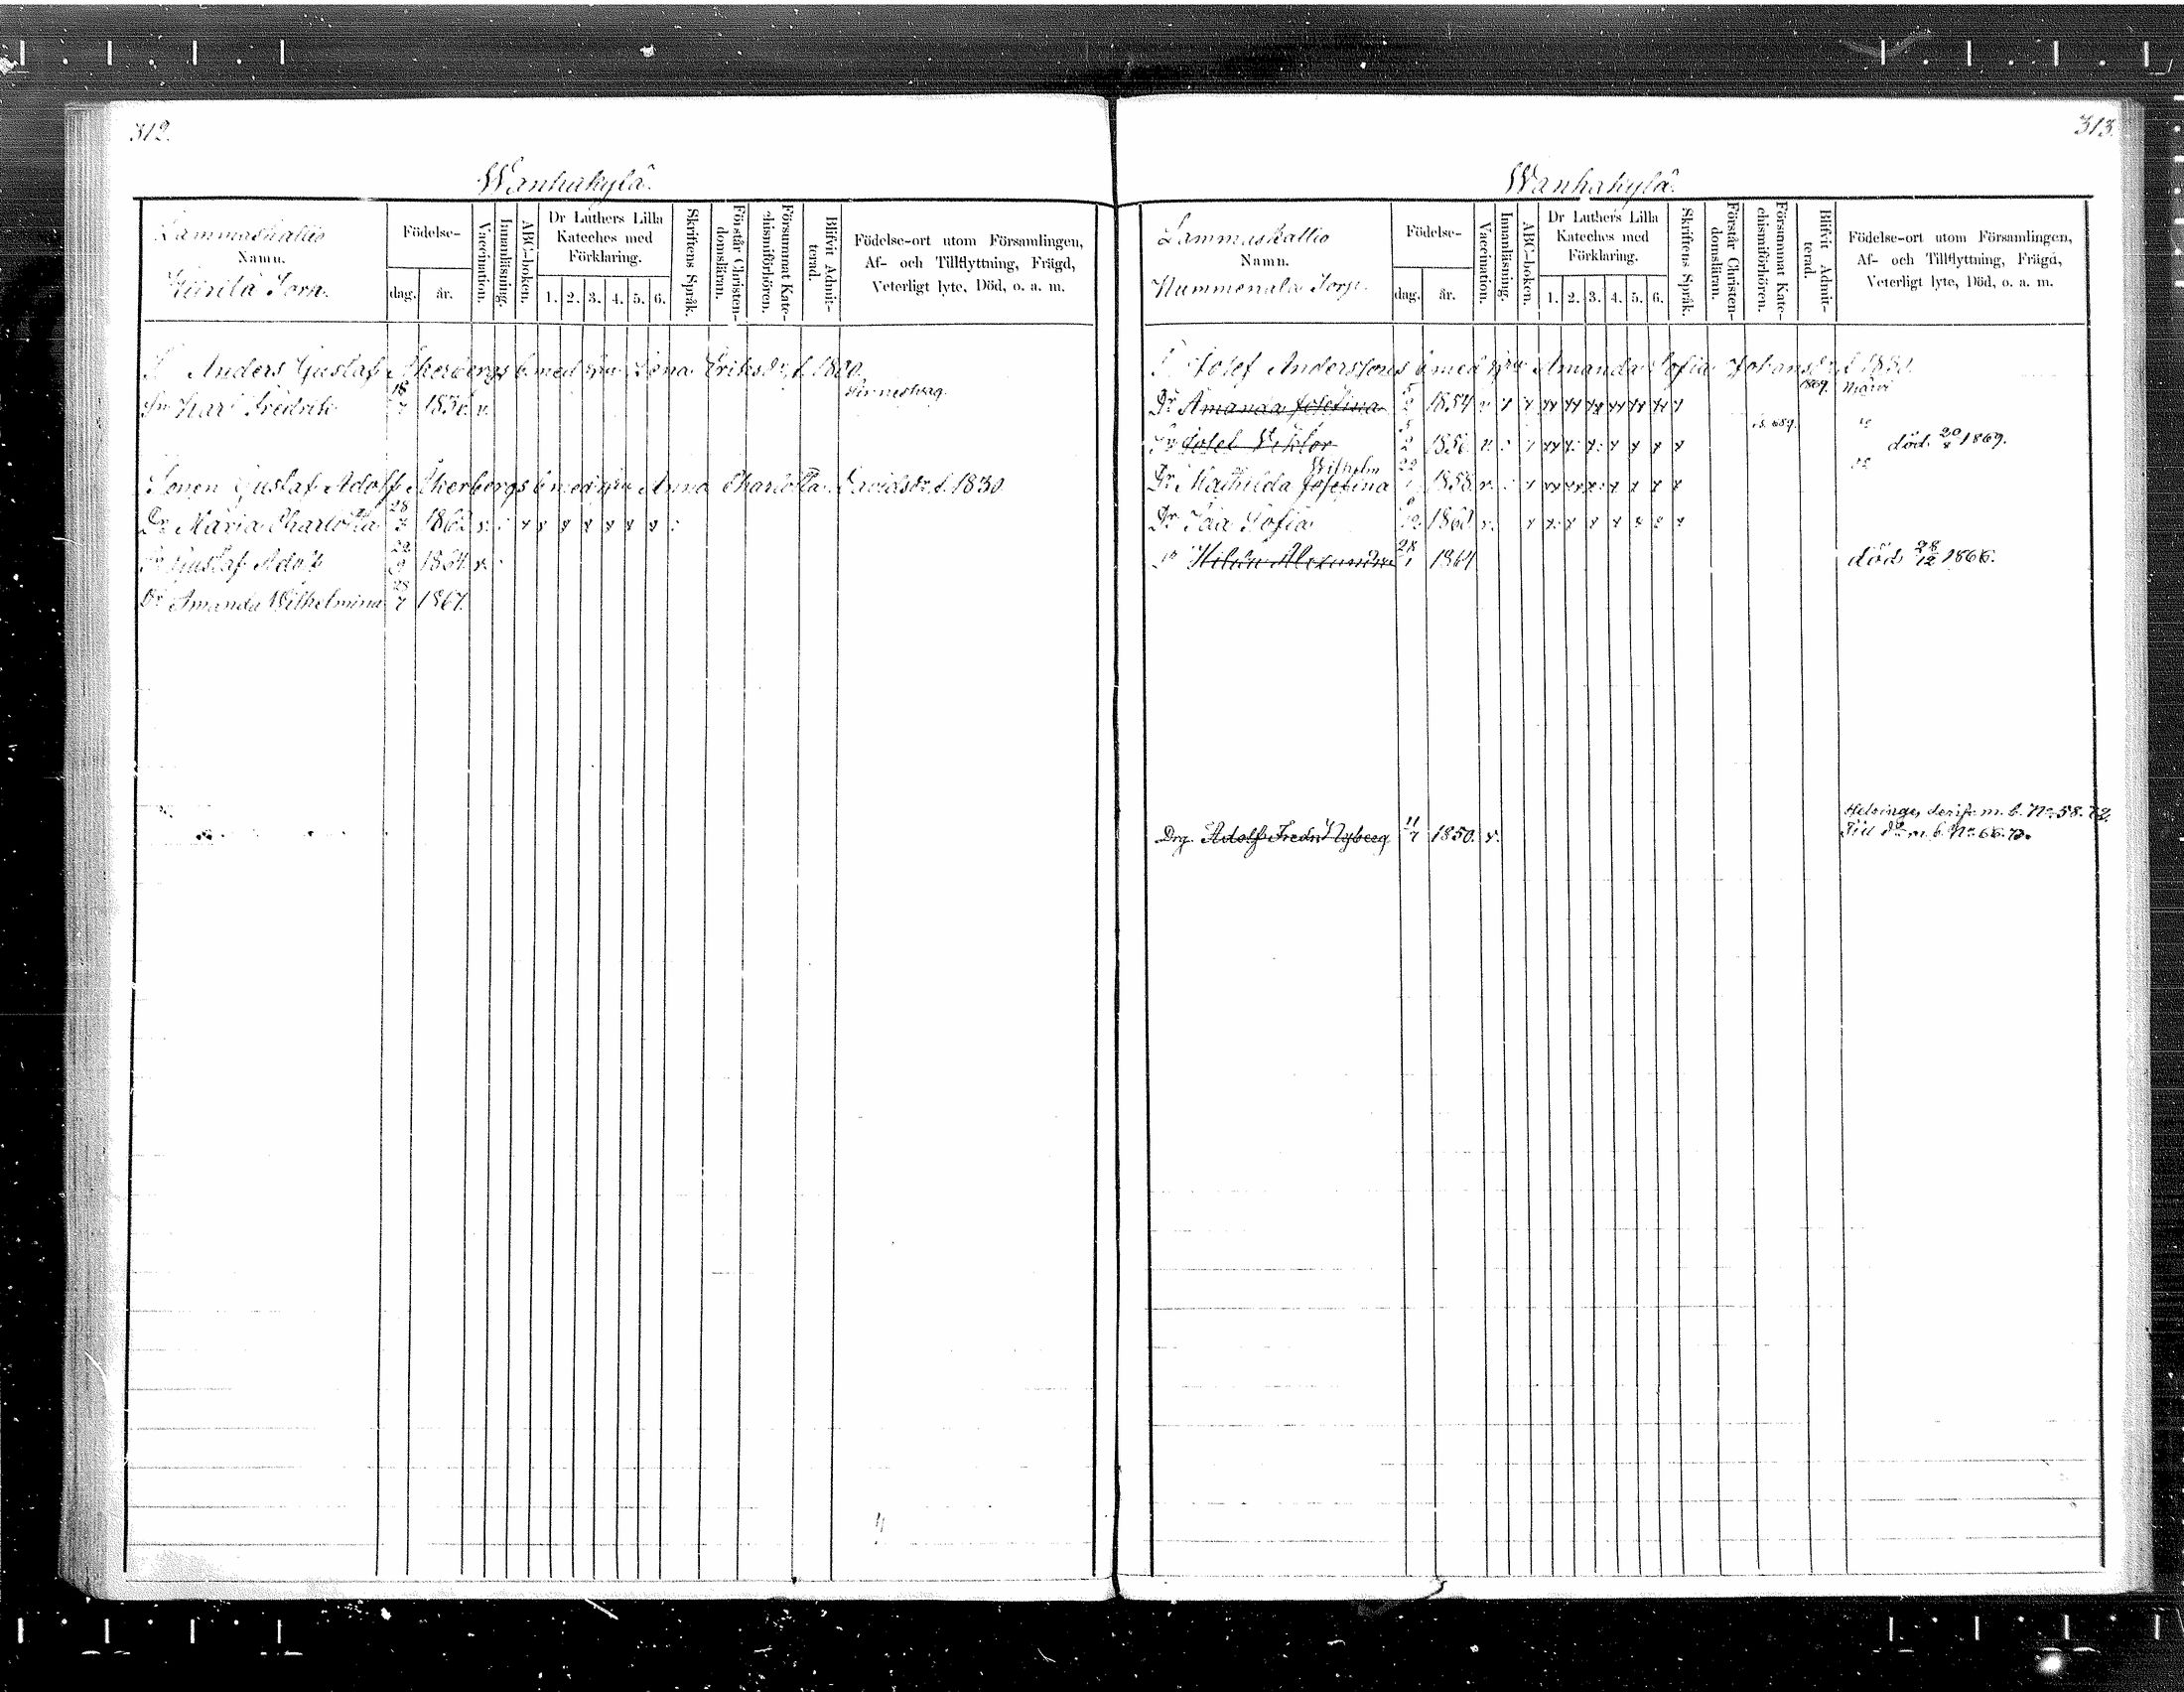 312.
Wanhakylä.
Lammaskallio
Namn.
Torp.
Födelse-
dag.
år.
Vaccination.
Innanläsning.
ABC-boken.
Dr Luthers Lilla
Kateches med
Förklaring.
1. 2. 3. 4. 5. 6.
Skriftens Språk.
Förstår Christen-
domsläran.
Försummat Kate-
chismiförhören.
Blifvit Admit-
terad.
Födelse-ort utom Församlingen,
Af- och Tillflyttning, Frägd,
Veterligt lyte, Död, o. a. m.
Anders Gustaf Åkerbergs b med Lena Eriksdr, f. 1800.
Sn Karl Fredrik 18/7 v.
Sonen Gustaf Adolf Åkerbergs b med Anna Charlotta Davidsdr, f. 1830
Dr Maria Charlotta 28 1862 v.
Sn Gustaf Adolf 22/9 1864 v.
Dr Amanda Wilhelmina 28/7 1867.
313.
Wanhakylä.
Lammaskallio
Namn.
Nummenala Torp.
Födelse-
dag.
år.
Vaccination.
Innanläsning.
ABC-boken.
Dr Luthers Lilla
Kateches med
Förklaring.
1. 2. 3. 4. 5. 6.
Skriftens Språk.
Förstår Christen-
domsläran.
Försummat Kate-
chismiförhören.
Blifvit Admit-
terad.
Födelse-ort utom Församlingen,
Af- och Tillflyttning, Frägd,
Veterligt lyte, Död, o. a. m.
Josef Anderssons b med Amanda Sofia Johansdr, f.
Dr Amanda Josefina 5/2 1854 v 1869.
Sn Josef Viktor 1856 v. död 20/8 1869.
Wilhelm
Dr Mathilda Josefina 22/1 1858 v.
Dr Ida Sofia 1860 v.
Dr Hilda Alexandra 28/1 1864 död 28/12 1866.
Helsinge, derifr. m. b. No 58. 72.
Drg. Adolf Fredr. Nyberg 11/7 1850. v. Till do m. b. No 66. 72.